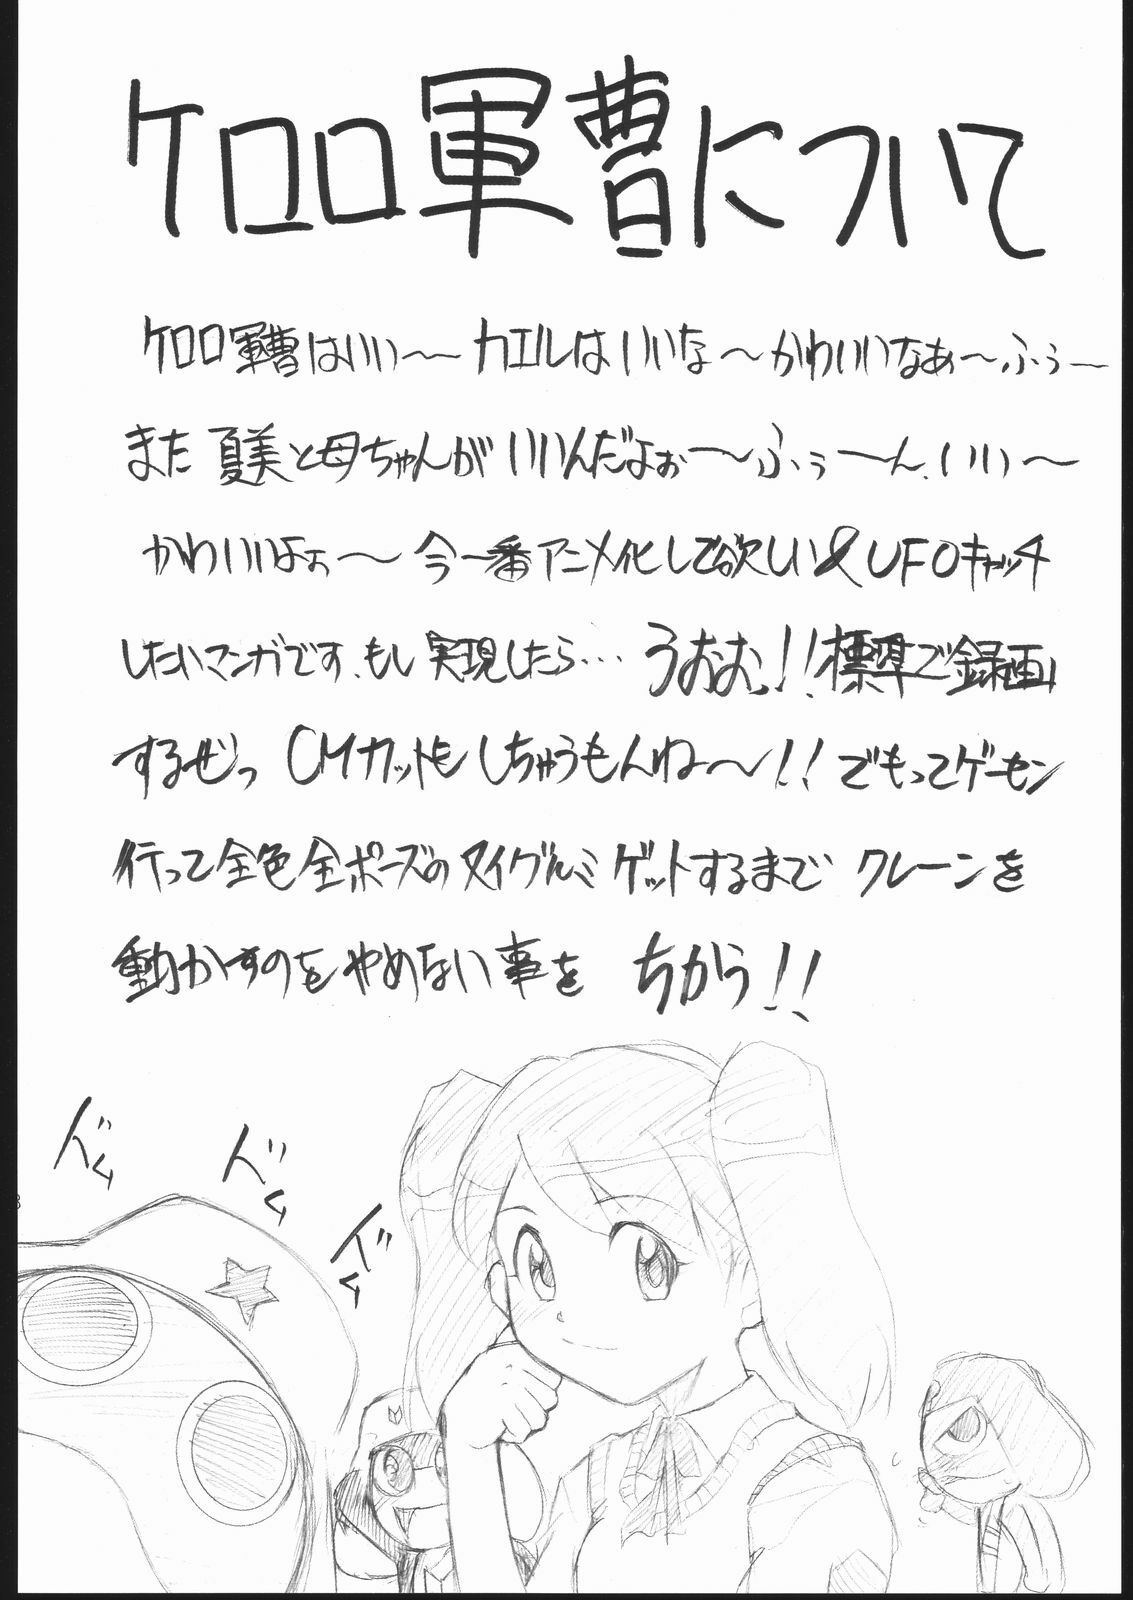 ケロロ軍曹について
ケロロ軍曹はいい〜カエルはいいな〜かわいいなあ〜ふぅー
また夏美と母ちゃんがいいんだよぉ〜ふぅーん、いい〜
かわいいよぉ〜今一番アニメ化して欲しい&UFOキャッチ
したいマンガです、もし実現したら… うおお、!!標準で録画
するぜっ CMカットもしちゅうもんね〜!!でもってゲーセン
行って全色全ポーズのヌイグルミゲットするまでクレーンを
動かすのをやめない事を ちかう!!
ドム
ドム
ドム